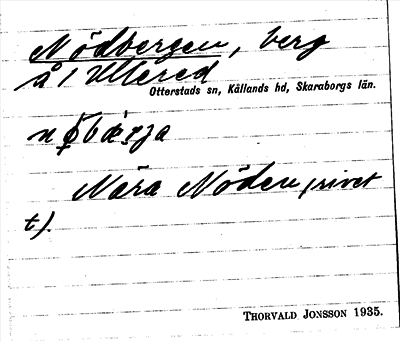 Nödbergen, berg
å / Ullered
Otterstads sn, Kållands hd, Skaraborgs län.
Nära Nöden
THORVALD JONSSON 1935.